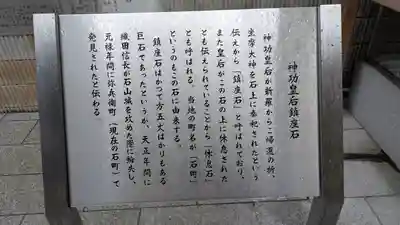 神功皇后鎮座石
神功皇后が新羅からご帰還の折、
坐摩大神を石上に奉祀されたという
伝えから「鎮座石」と呼ばれており、
また皇后がこの石の上に休息された
とも伝えられていることから「休息石」
とも呼ばれる。当地の町名が「石町」
というのもこの石に由来する。
鎮座石はかつて方五丈ばかりもある
巨石であったというが、天正年間に
織田信長が石山城を攻めた際に紛失し、
元禄年間に弥兵衛町(現在の石町)で
発見されたと伝わる